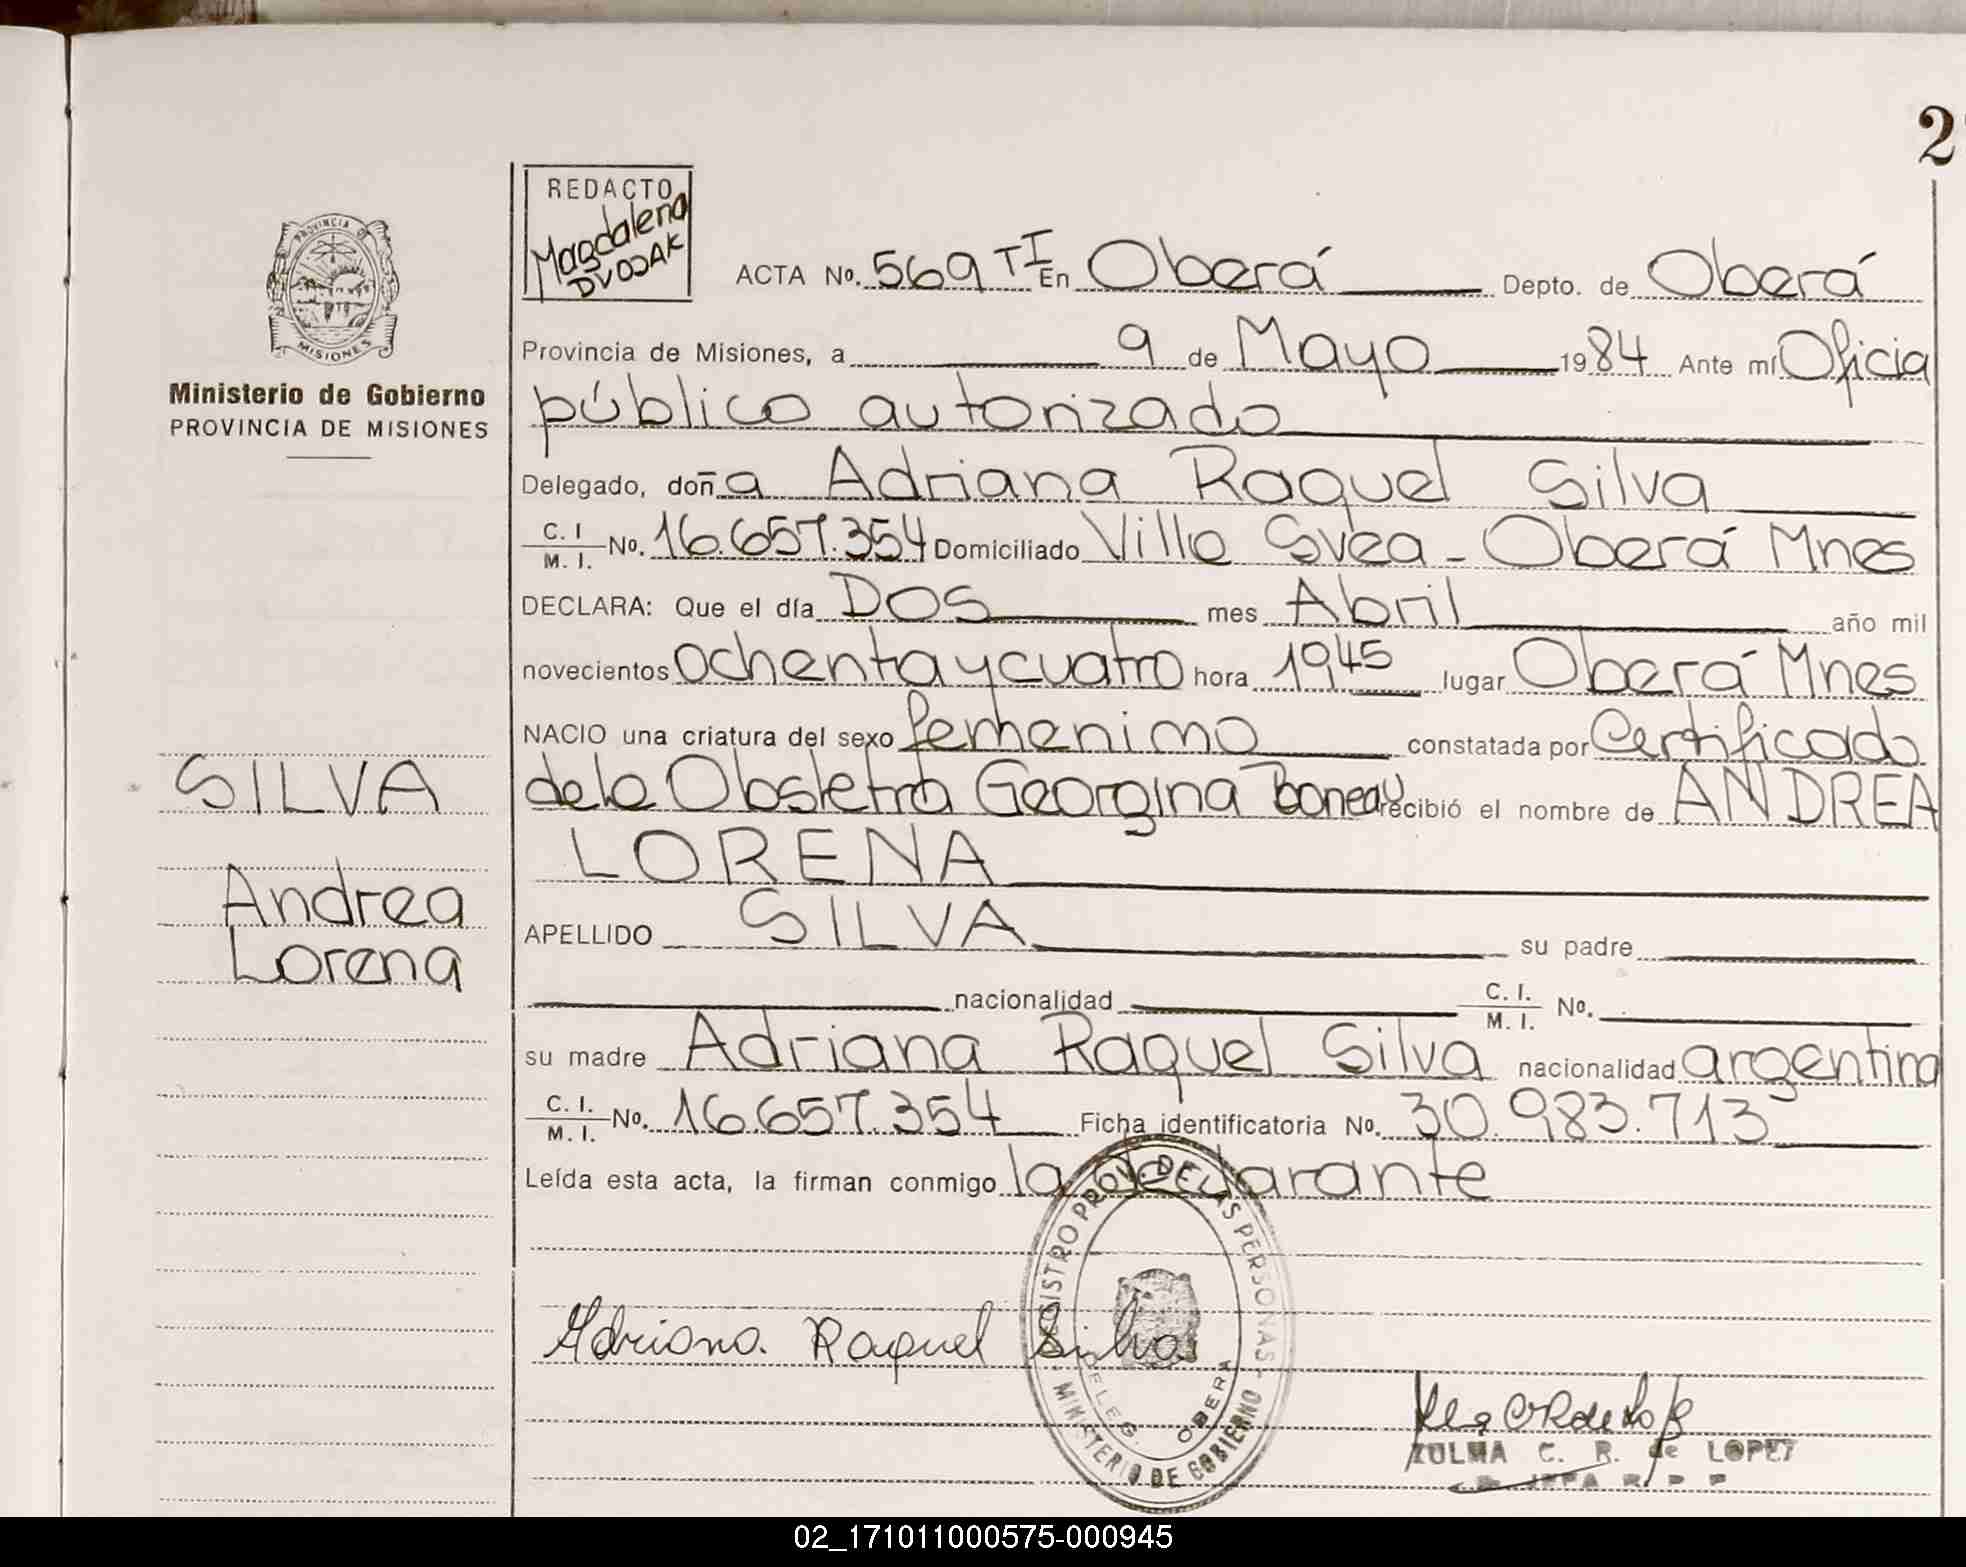 2
REDACTO
Magdalena
DVOJAK
PROVINCIA D
MISIONES
Ministerio de Gobierno
PROVINCIA DE MISIONES
ACTA No. 569 TI En Oberá Depto. de Oberá
Provincia de Misiones, a 9 de Mayo 1984 Ante mí Oficia
público autorizado
Delegado, doña Adriana Raquel Silva
C. I
M. I. No. 16.657.354 Domiciliado Villa Svea - Oberá Mnes
DECLARA: Que el día Dos mes Abril año mil
novecientos ochenta y cuatro hora 1945 lugar Oberá Mnes
NACIO una criatura del sexo femenino constatada por Certificado
de la Obstetra Georgina Boneau recibió el nombre de ANDREA
LORENA
SILVA
Andrea
Lorena
APELLIDO SILVA su padre
nacionalidad C. I.
M. I. No.
su madre Adriana Raquel Silva nacionalidad argentina
C. I.
M. I. No. 16.657.354 Ficha identificatoria No. 30.983.713
Leída esta acta, la firman conmigo la declarante
REGISTRO PROV. DE LAS PERSONAS - MINISTERIO DE GOBIERNO
DELEG. OBERA
Adriana Raquel Silva
ZULMA C. R. de LOPEZ
02_171011000575-000945